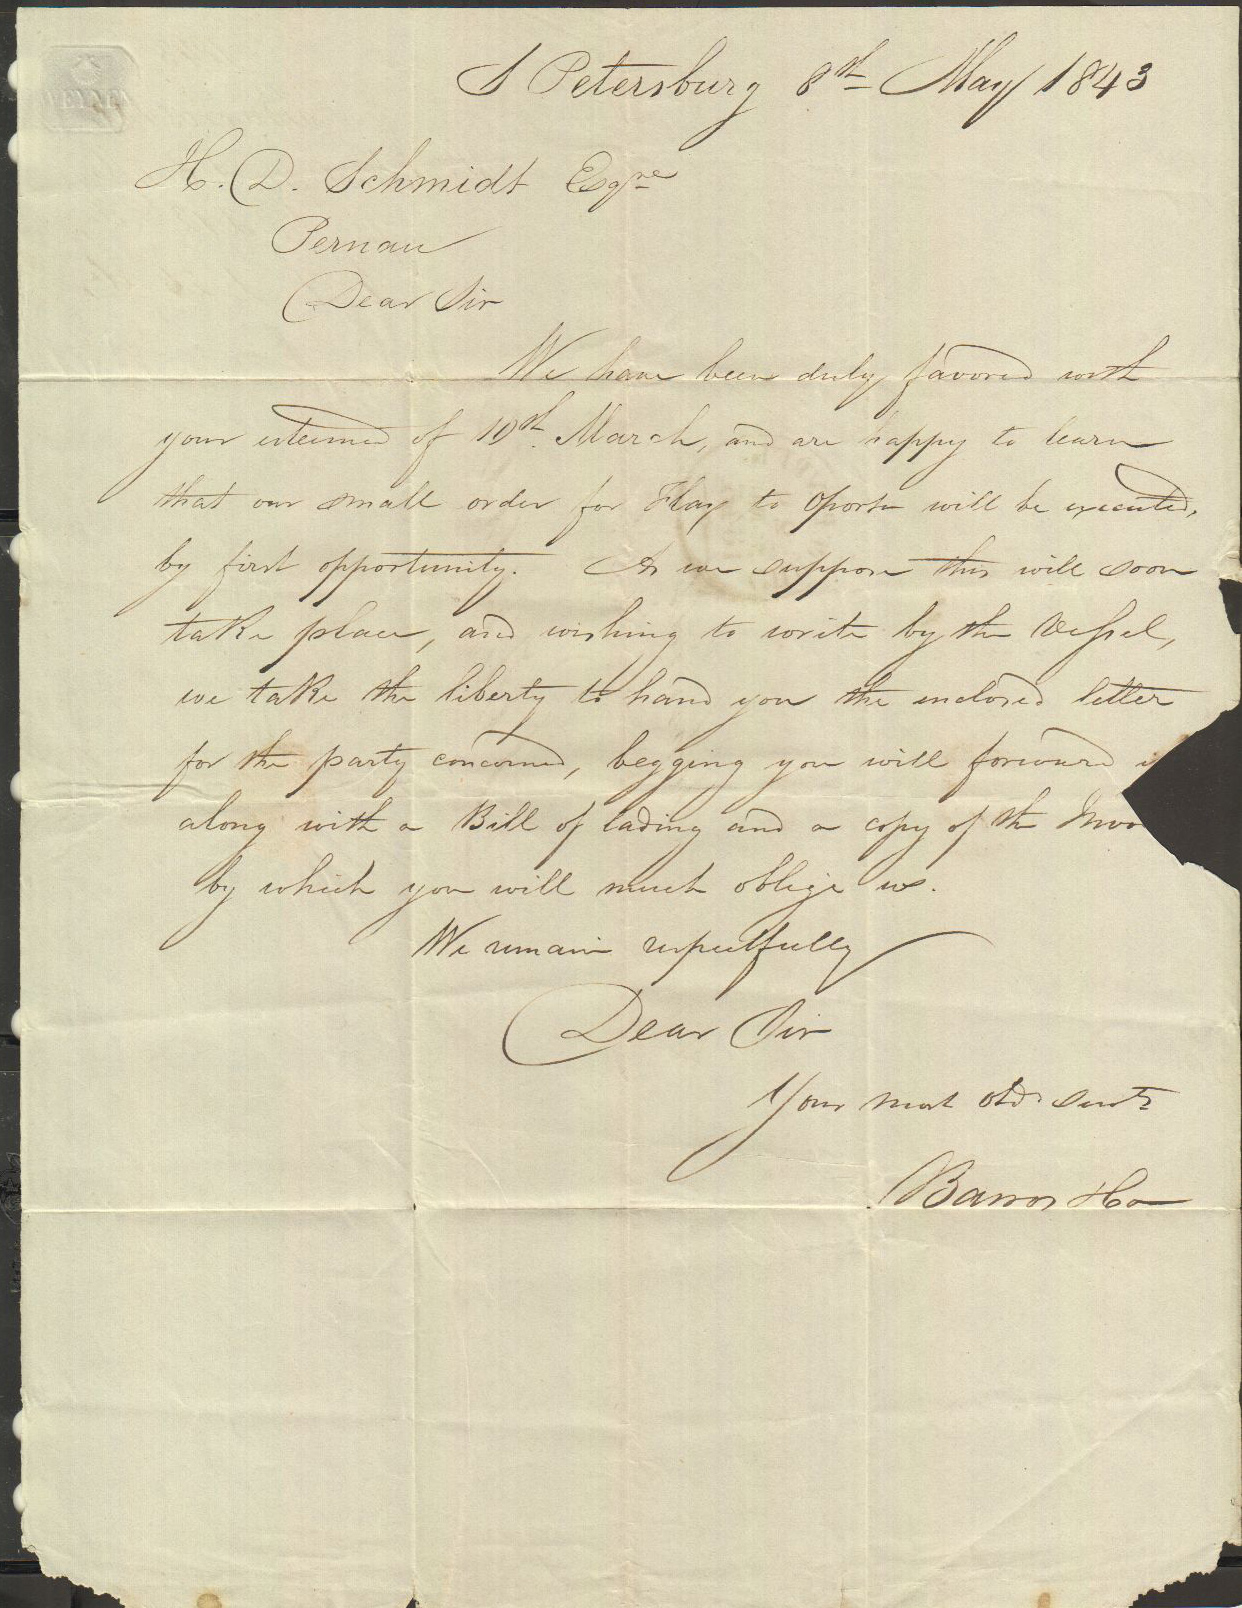 S Petersburg 8th May 1843
H. D. Schmidt Esqre
Pernau
Dear Sir
We have been duly favored with
your esteemed of 10th March, and are happy to learn
that our small order for Flax to Oporto will be executed,
by first opportunity. As we suppose this will soon
take place, and wishing to write by the Vessel,
we take the liberty to hand you the enclosed letter
for the party concerned, begging you will forward
along with a Bill of lading and a copy of the Invo
by which you will much oblige us.
We remain respectfully
Dear Sir
Your most obdt servts